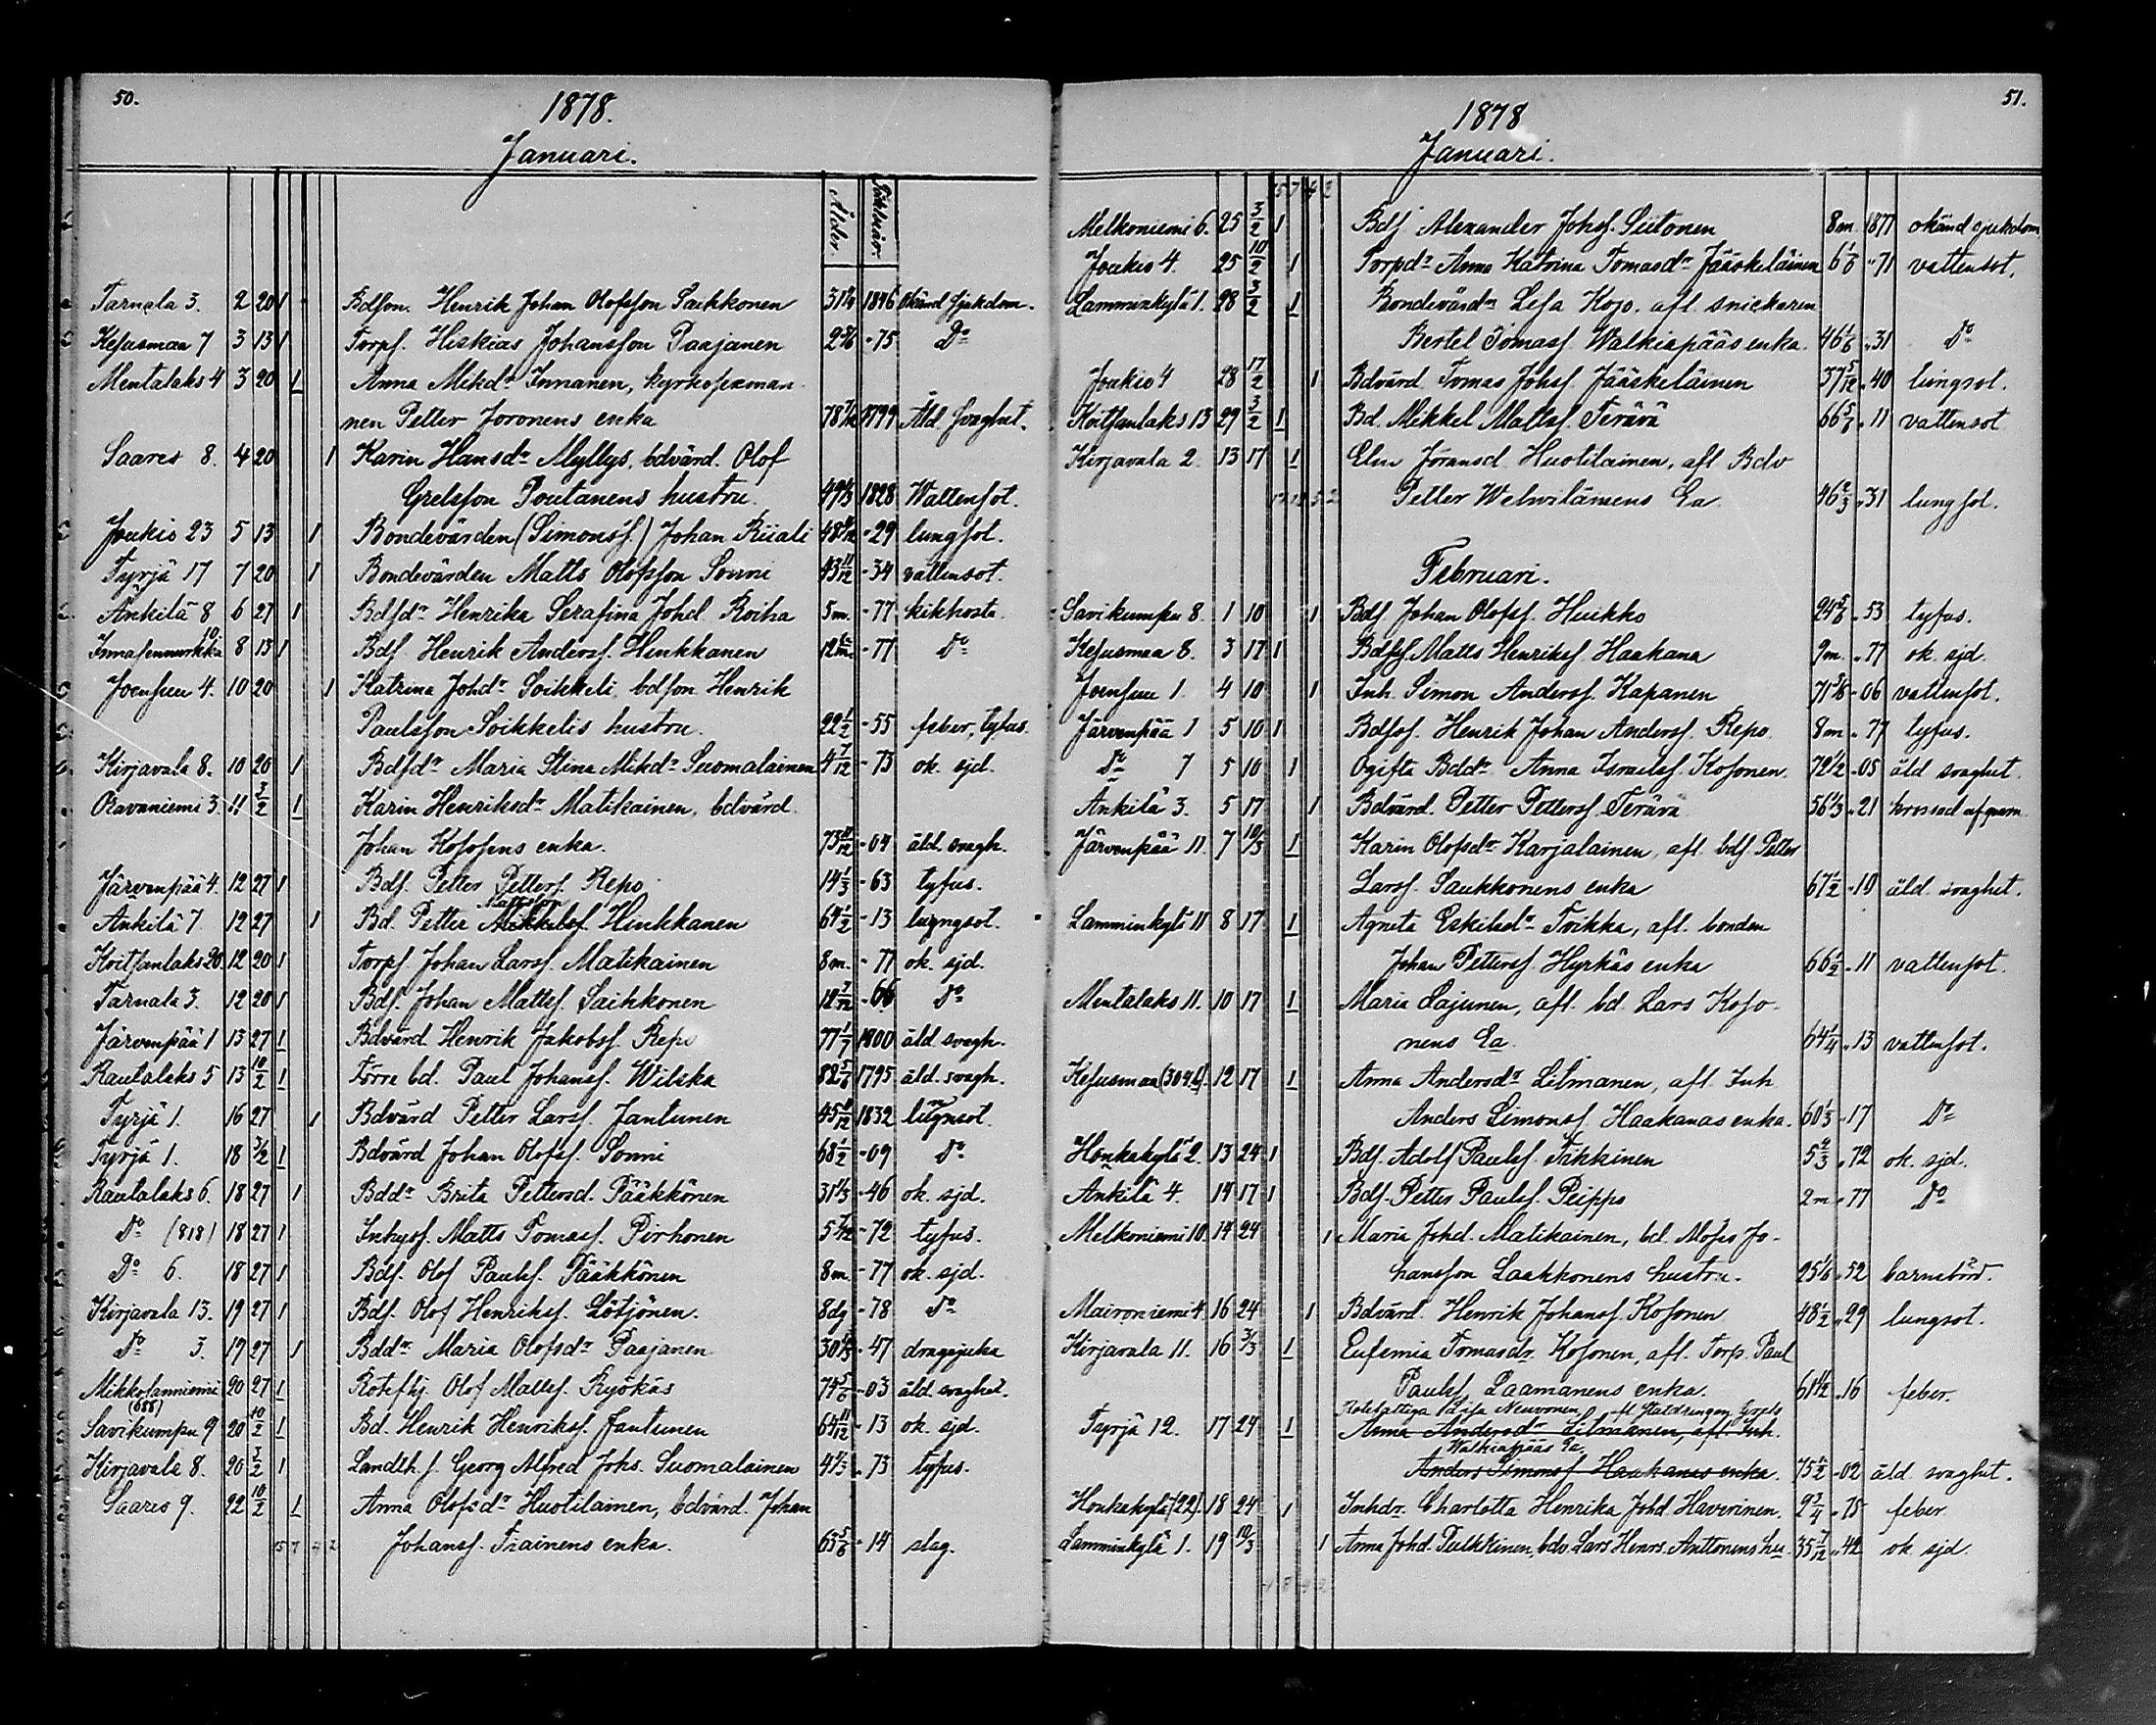 50.
1878.
Januari.
Ålder. Födelseår.
Tarnala 3. 2 20 1 Bdson. Henrik Johan Olofsson Saikkonen 1846 Okänd sjukdom.
Kesusmaa 7 3 13 1 Torps. Hiskias Johansson Paajanen - 75 Do
Mentalaks 4 3 20 1 Anna Mikdr Innanen, kyrkosexman-
nen Petter Joronens enka 1799 Åld. svaghet.
Saares 8. 4 20 1 Karin Hansdr Myllys, bdvärd. Olof
Grelsson Poutanens hustru. 1828 Wattensot.
Joukio 23 5 13 1 Bondevärden (Simonss.) Johan Riiali - 29 lungsot.
Tyrjä 17 7 20 1 Bondevärden Matts Olofsson Sonni 43 11/12 - 34 vattensot.
Ankilä 8 6 27 1 Bdsdr Henrika Serafina Johd. Roiha 5m. - 77 kikhosta.
10. 8 13 1 Bds. Henrik Anderss. Hinkkanen - 77 Do
Joensuu 4. 10 20 1 Katrina Johdr Soikkeli, bdson Henrik
Paulsson Soikkelis hustru. 22 1/2 - 55 feber, tyfus.
Kirjavala 8. 10 20 1 Bdsdr Maria Stina Mikdr Suomalainen 4 7/12 - 73 ok. sjd.
Oravaniemi 3. 11 3/2 1 Karin Henriksdr Matikainen, bdvärd.
Johan Kososens enka. 73 11/12 - 04 åld. svagh.
Järvenpää 4. 12 27 1 Bds. Petter Petterss. Repo 14 1/3 - 63 tyfus.
Ankilä 7. 12 27 1 Bd. Petter Mikkelss. Hinkkanen 64 1/2 - 13 lungsot.
Koitsanlaks 20. 12 20 1 Torps. Johan Larss. Matikainen 8m. - 77 ok. sjd.
Tarnala 3. 12 20 1 Bds. Johan Mattss. Saikkonen - 66 Do
Järvenpää 1 13 27 1 Bdvärd Henrik Jakobss. Repo 77 1/7 1800 åld. svagh.
Rautalaks 5 13 10/2 1 Förre bd. Paul Johanss. Wilska 82 5/6 1795 åld. svagh.
Tyrjä 1. 16 27 1 Bdvärd Petter Larss. Jantunen 45 11/12 1832 lungsot.
Tyrjä 1. 18 3/2 1 Bdvärd Johan Olofss. Sonni 68 1/2 - 09 Do
Rautalaks 6. 18 27 1 Bddr Brita Pettersd. Pääkkönen 31 1/3 - 46 ok. sjd.
Do (818) 18 27 1 Inhyss. Matts Tomass. Pirhonen 5 - 72 tyfus.
Do 6. 18 27 1 Bds. Olof Paulss. Pääkkönen 8m. - 77 ok. sjd.
Kirjavala 13. 19 27 1 Bds. Olof Henrikss. Lötjönen. 8dg - 78 Do
Do 3. 19 27 1 Bddr Maria Olofsdr Paajanen - 47 dragsjuka
Mikkolanniemi 20 27 1 Rotehj. Olof Mattss. Ryökäs 74 5/6 - 03 åld. svaghet.
(688)
Savikumpu 9 20 10/2 1 Bd. Henrik Henrikss. Jantunen 64 11/12 - 13 ok. sjd.
Kirjavala 8. 20 3/2 1 Landth. s. Georg Alfred Johs. Suomalainen 4 1/3 - 73 tyfus.
Saares 9. 22 10/2 1 Anna Olofsdr Huotilainen, bdvärd. Johan
15 7 4 2 Johanss. Iiainens enka. 63 5/6 - 14 slag.
51.
1878
Januari.
15 7 4 2
Melkoniemi 6. 25 3/2 1 Bds Alexander Johss. Siitonen 8m. 1877 okänd sjukdom
Joukio 4. 25 10/2 1 Torpdr Anna Katrina Tomasdr Jääskeläinen 6 1/6 " 71 vattensot.
Lamminkylä 1. 28 3/2 1 Bondevärdr Lisa Kojo. afl. snickaren
Bertel Tomass. Walkiapääs enka. 46 1/6 " 31 Do
Joukio 4 28 17/2 1 Bdvärd. Tomas Johss. Jääskeläinen 37 5/12 " 40 lungsot.
Koitsanlaks 13 29 3/2 1 Bd. Mikkel Mattss. Terävä 66 5/6 " 11 vattensot
Kirjavala 2. 13 17 1 Elin Göransd. Huotilainen, afl. Bdv
Petter Welvilainens Ea. 46 2/3 " 31 lungsot.
Februari.
Savikumpu 8. 1 10 1 Bds Johan Olofss. Huikko 24 5/6 - 53 tyfus.
Kesusmaa 8. 3 17 1 Bdss. Matts Henrikss. Haakana 9m. " 77 ok. sjd.
Joensuu 1. 4 10 1 Inh. Simon Anderss. Kapanen - 06 vattensot.
Järvenpää 1 5 10 1 Bdss. Henrik Johan Anderss. Repo 8m " 77 tyfus.
Do 7 5 10 1 Ogifta Bddr Anna Israelsd. Kosonen. 72 1/2 - 05 åld svaghet.
Ankilä 3. 5 17 1 Bdvärd. Petter Petterss. Terävä 56 1/3 " 21 krossad af qvarn
Järvenpää 11. 7 10/3 1 Karin Olofsdr Karjalainen, afl. bds. Petter
Larss. Saukkonens enka 67 1/2 - 10 åld. svaghet.
Lamminkylä 11 8 17 1 Agneta Eskilsdr Toikka, afl. bonden
Johan Petterss. Hyrkäs enka 66 1/2 " 11 vattensot.
Mentalaks 11. 10 17 1 Maria Lajunen, afl. bd. Lars Koso-
nens Ea. 64 1/4 " 13 vattensot.
Kesusmaa 12 17 1 Anna Andersdr Litmanen, afl. Inh
Anders Simonss. Haakanas enka. 60 1/3 " 17 Do
Honkakylä 2. 13 24 1 Bds. Adolf Paulss. Täkkinen " 72 ok. sjd.
Ankilä 4. 14 17 1 Bds. Petter Paulss. Peippo 2m " 77 Do
Melkoniemi 10. 14 24 1 Maria Johd. Matikainen, bd. Moses Jo-
hansson Laakkonens hustru. 25 1/6 " 52 barnabörd.
Maironiemi 4. 16 24 1 Bdvärd. Henrik Johanss. Kosonen 48 1/2 " 29 lungsot.
Kirjavala 11. 16 3/3 1 Eufemia Tomasdr. Kosonen, afl. Torp. Paul
Paulss. Laamanens enka. " 16 feber.
Rotefattiga Lisa Neuvonen, afl
Tyrjä 12. 17 24 1 Anna Andersdr Litmanen, afl. Inh.
Walkiapääs Ea.
Anders Simonss Haakanas enka. 75 1/2 - 02 åld svaghet.
Honkakylä (22). 18 24 1 Inhdr. Charlotta Henrika Johd. Haverinen. 2 3/4 " 75 feber
Lamminkylä 1. 19 10/3 1 Anna Johd. Pulkkinen, bdv. Lars Henrs. Anttonens hu. 35 7/12 " 42 ok sjd.